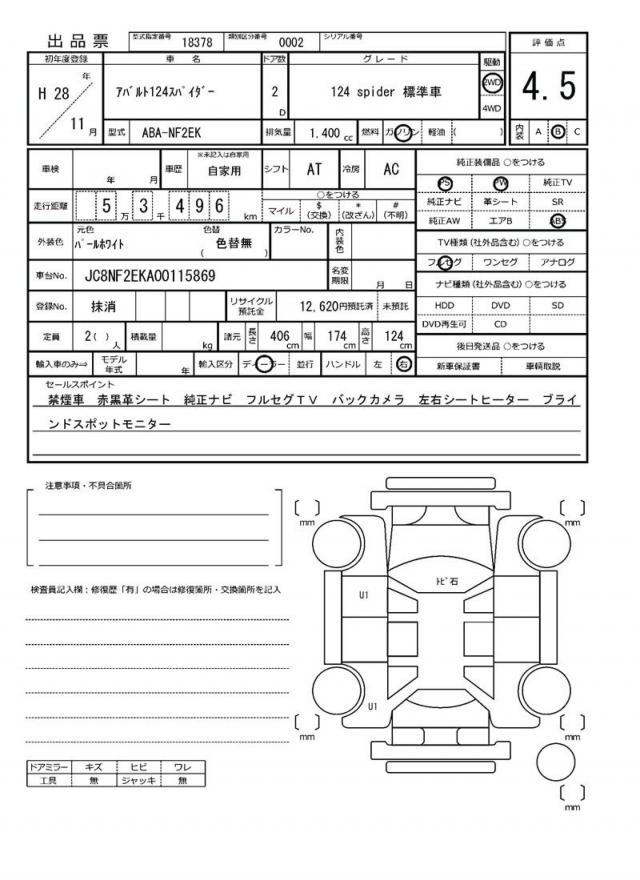 出品票 型式指定番号 18378 類別区分番号 0002 シリアル番号
評価点
4.5
内装 A B C
初年度登録 車名 ドア数 グレード 駆動
H 28 年 11 月
ｱﾊﾞﾙﾄ124ｽﾊﾟｲﾀﾞｰ 2 D 124 spider 標準車 2WD 4WD
型式 ABA-NF2EK 排気量 1,400 cc 燃料 ガソリン 軽油 ( )
車検 年 月 車歴 ※未記入は自家用 自家用 シフト AT 冷房 AC
走行距離 5 万 3 千 4 9 6 km
○をつける
マイル $ (交換) * (改ざん) # (不明)
外装色 元色 ﾊﾟｰﾙﾎﾜｲﾄ 色替 ( 色替無 ) カラーNo. 内装色
車台No. JC8NF2EKA00115869 名変期限 月 日
登録No. 抹消 リサイクル預託金 12,620円預託済 未預託
定員 2( ) 人 積載量 kg 諸元 長さ 406 cm 幅 174 cm 高さ 124 cm
輸入車のみ⇒ モデル年式 年 輸入区分 ディーラー 並行 ハンドル 左 右
純正装備品 ○をつける
PS PW 純正TV
純正ナビ 革シート SR
純正AW エアB ABS
TV種類(社外品含む) ○をつける
フルセグ ワンセグ アナログ
ナビ種類(社外品含む) ○をつける
HDD DVD SD
DVD再生可 CD
後日発送品 ○をつける
新車保証書 車輌取説
セールスポイント
禁煙車 赤黒革シート 純正ナビ フルセグＴＶ バックカメラ 左右シートヒーター ブライ
ンドスポットモニター
注意事項・不具合箇所
検査員記入欄：修復歴「有」の場合は修復箇所・交換箇所を記入
[ ] mm
[ ] mm
ﾄﾋﾞ石
U1
U1
[ ] mm
[ ] mm
[ ] mm
ドアミラー キズ ヒビ ワレ
工具 無 ジャッキ 無